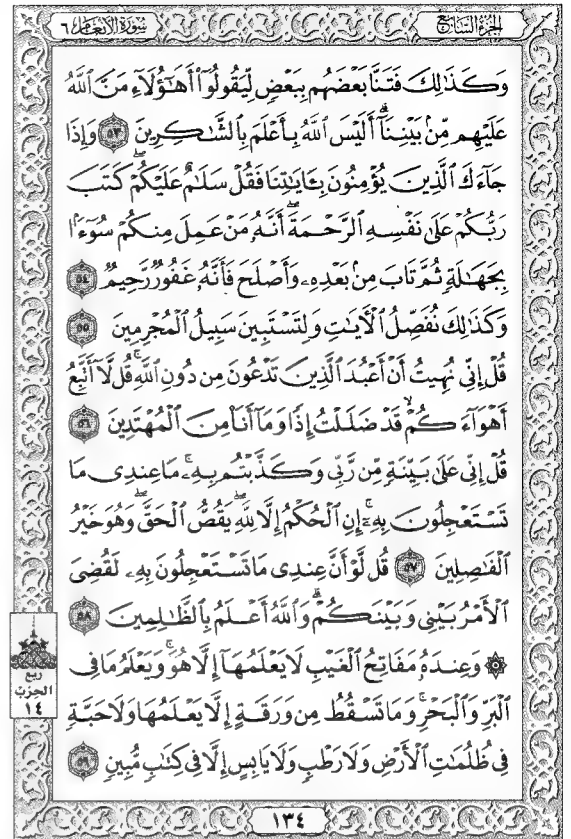 الجُزءُ السَّابِعُ
سُورَةُ الأَنعَام ٦
وَكَذَٰلِكَ فَتَنَّا بَعْضَهُم بِبَعْضٍ لِّيَقُولُوٓا۟ أَهَٰٓؤُلَآءِ مَنَّ ٱللَّهُ
عَلَيْهِم مِّنۢ بَيْنِنَآ ۗ أَلَيْسَ ٱللَّهُ بِأَعْلَمَ بِٱلشَّٰكِرِينَ ٥٣ وَإِذَا
جَآءَكَ ٱلَّذِينَ يُؤْمِنُونَ بِـَٔايَٰتِنَا فَقُلْ سَلَٰمٌ عَلَيْكُمْ ۖ كَتَبَ
رَبُّكُمْ عَلَىٰ نَفْسِهِ ٱلرَّحْمَةَ ۖ أَنَّهُۥ مَنْ عَمِلَ مِنكُمْ سُوٓءًۢا
بِجَهَٰلَةٍ ثُمَّ تَابَ مِنۢ بَعْدِهِۦ وَأَصْلَحَ فَأَنَّهُۥ غَفُورٌ رَّحِيمٌ ٥٤
وَكَذَٰلِكَ نُفَصِّلُ ٱلْآيَٰتِ وَلِتَسْتَبِينَ سَبِيلُ ٱلْمُجْرِمِينَ ٥٥
قُلْ إِنِّى نُهِيتُ أَنْ أَعْبُدَ ٱلَّذِينَ تَدْعُونَ مِن دُونِ ٱللَّهِ ۚ قُل لَّآ أَتَّبِعُ
أَهْوَآءَكُمْ ۙ قَدْ ضَلَلْتُ إِذًا وَمَآ أَنَا۠ مِنَ ٱلْمُهْتَدِينَ ٥٦
قُلْ إِنِّى عَلَىٰ بَيِّنَةٍ مِّن رَّبِّى وَكَذَّبْتُم بِهِۦ ۚ مَا عِندِى مَا
تَسْتَعْجِلُونَ بِهِۦٓ ۚ إِنِ ٱلْحُكْمُ إِلَّا لِلَّهِ ۖ يَقُصُّ ٱلْحَقَّ ۖ وَهُوَ خَيْرُ
ٱلْفَٰصِلِينَ ٥٧ قُل لَّوْ أَنَّ عِندِى مَا تَسْتَعْجِلُونَ بِهِۦ لَقُضِىَ
ٱلْأَمْرُ بَيْنِى وَبَيْنَكُمْ ۗ وَٱللَّهُ أَعْلَمُ بِٱلظَّٰلِمِينَ ٥٨
۞ وَعِندَهُۥ مَفَاتِحُ ٱلْغَيْبِ لَا يَعْلَمُهَآ إِلَّا هُوَ ۚ وَيَعْلَمُ مَا فِى
ٱلْبَرِّ وَٱلْبَحْرِ ۚ وَمَا تَسْقُطُ مِن وَرَقَةٍ إِلَّا يَعْلَمُهَا وَلَا حَبَّةٍ
فِى ظُلُمَٰتِ ٱلْأَرْضِ وَلَا رَطْبٍ وَلَا يَابِسٍ إِلَّا فِى كِتَٰبٍ مُّبِينٍ ٥٩
ربع
الحزب
١٤
١٣٤